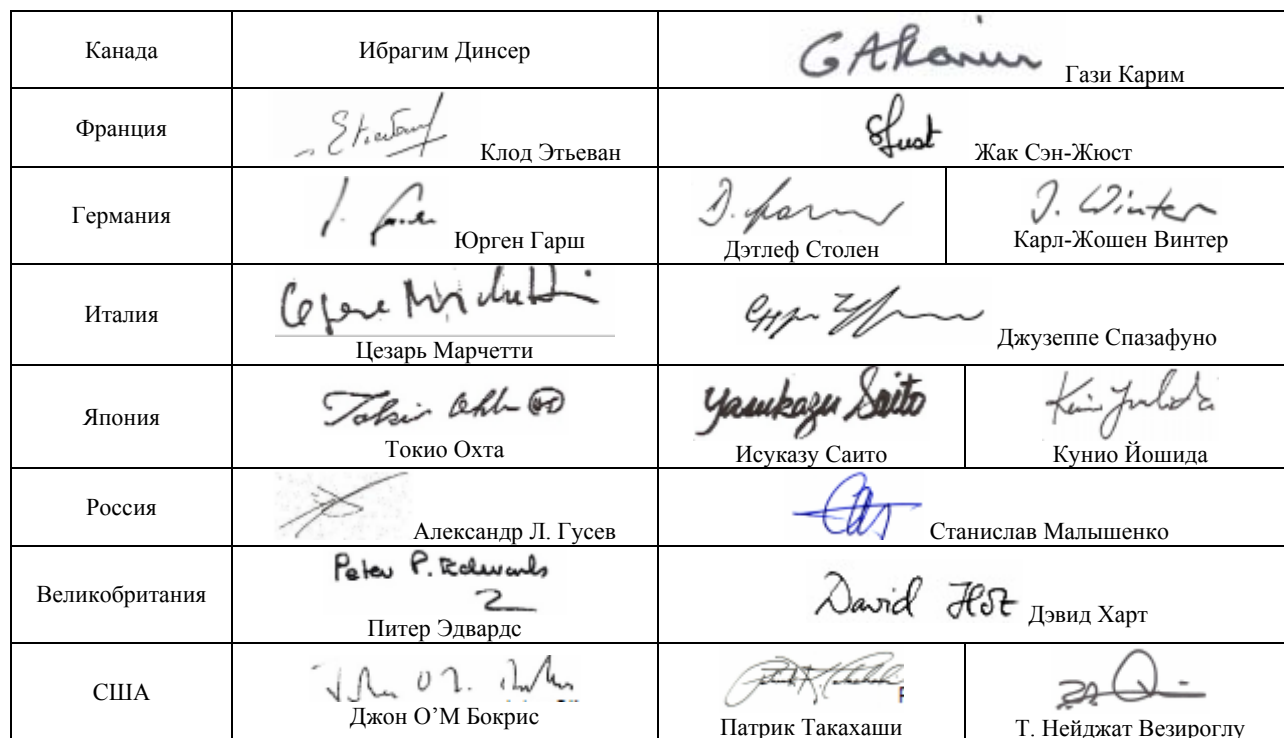 Канада
Ибрагим Динсер
GAKarim
Гази Карим
Франция
Клод Этьеван
Жак Сэн-Жюст
Германия
Юрген Гарш
Дэтлеф Столен
J. Winter
Карл-Жошен Винтер
Италия
Цезарь Марчетти
Джузеппе Спазафуно
Япония
Токио Охта
Yasukazu Saito
Исуказу Саито
Кунио Йошида
Россия
Александр Л. Гусев
Станислав Малышенко
Великобритания
Peter P. Edwards
Питер Эдвардс
David
Дэвид Харт
США
Джон О’М Бокрис
Патрик Такахаши
Т. Нейджат Везироглу